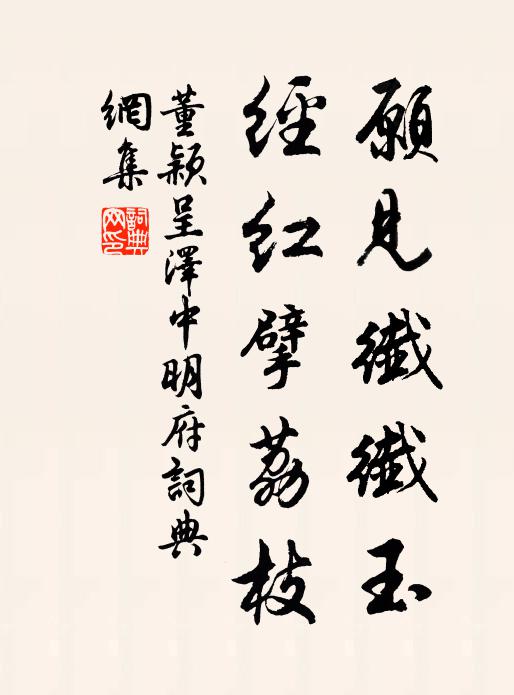 願見纖纖玉
經紅擘荔枝
董穎呈澤中明府詞典
網集
詞典網印